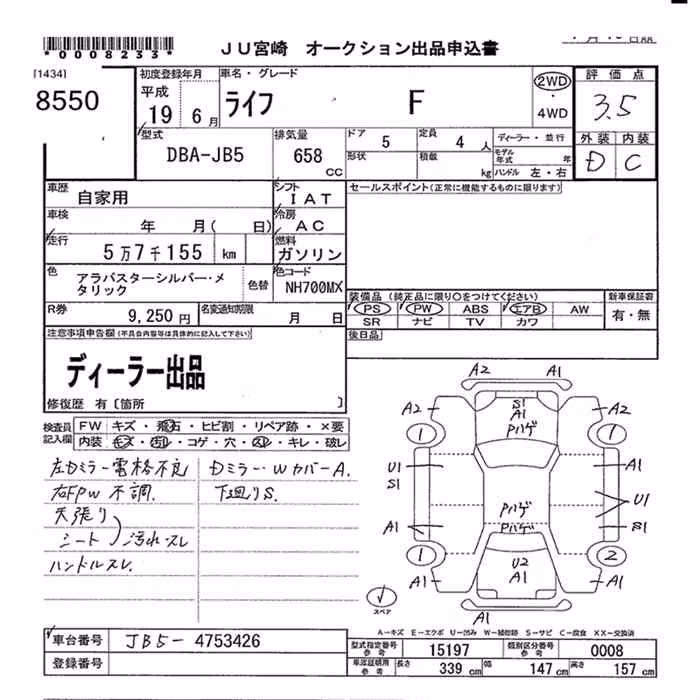 *0008233*
JU宮崎 オークション出品申込書
[1434]
8550
初度登録年月 車名・グレード
平成 19 6月
ライフ F
2WD
・
4WD
評価点
3.5
外装 内装
D C
型式 排気量 ドア 5 定員 4人 ディーラー・並行
DBA-JB5 658 CC 形状 積載 kg モデル年式 年
ハンドル 左・右
車歴 自家用 シフト IAT
セールスポイント(正常に機能するものに限ります)
車検 年 月( 日) 冷房 AC
走行 5万7千155 km 燃料 ガソリン
色 アラバスターシルバー・メタリック 色替 色コード NH700MX
装備品 (純正品に限り○をつけてください) 新車保証書
PS PW ABS エアB AW 有・無
SR ナビ TV カワ
R券 9,250円 名変通知期限 月 日
後日品
注意事項申告欄(不具合内容等は具体的に記入して下さい)
ディーラー出品
修復歴 有〔箇所 〕
検査員記入欄 FW キズ・飛石・ヒビ割・リペア跡・×要
内装 キズ・汚れ・コゲ・穴・スレ・キレ・破レ
左Dミラー電格不良 DミラーWカバーA.
右FPW 不調. 下廻りS.
天張り
シート 汚れスレ
ハンドルスレ.
A2 A1
A2 S1 A2
A1
Pハゲ
1 1
U1 A1
S1
Pハゲ U1
A1 Pハゲ S1
1 U2 2
A1 A1 A1
A1
スペア
A-キズ E-エクボ U-凹み W-補修跡 S-サビ C-腐食 XX-交換済
車台番号 JB5-4753426
型式指定番号 参考 15197 類別区分番号 参考 0008
登録番号
車庫証明用 参考 長さ 339cm 幅 147cm 高さ 157cm